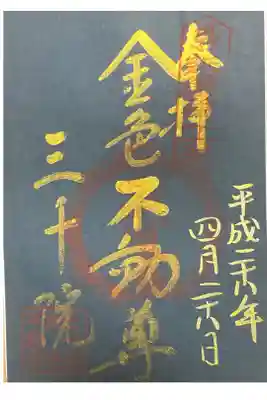 奉拝
平成二十八年
四月二十八日
金色不動尊
三千院